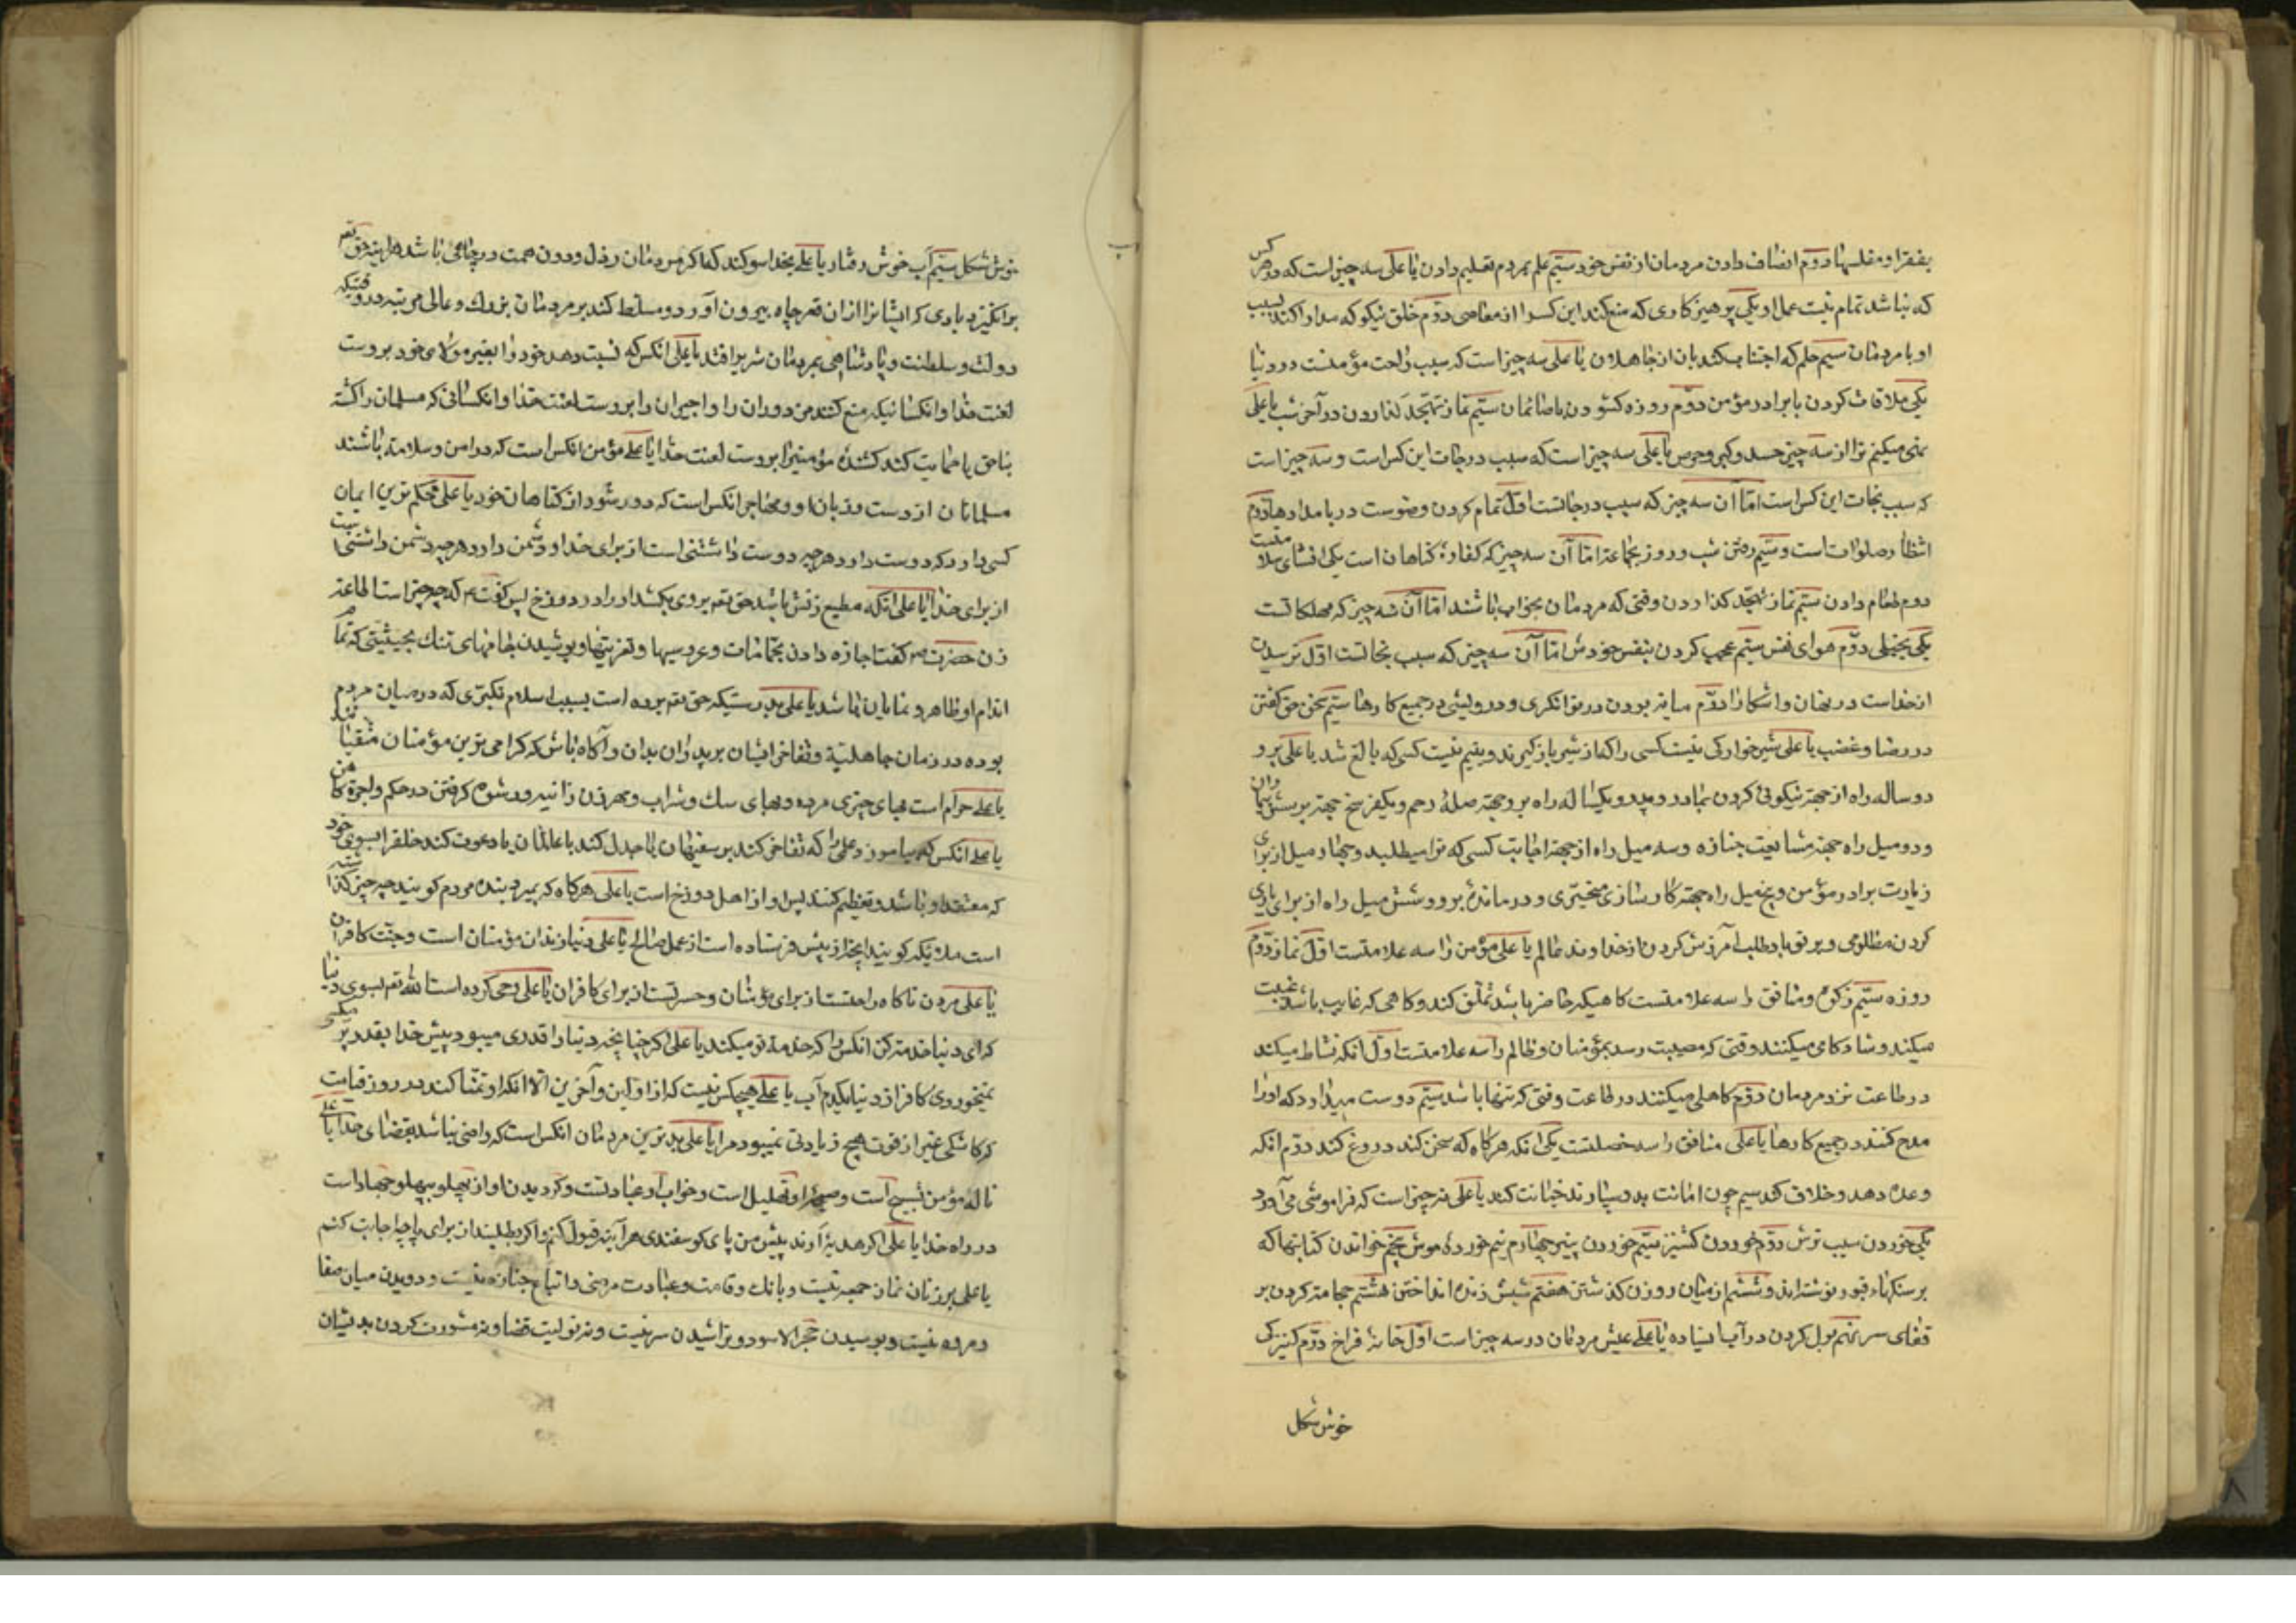 بفقرا و مفلسها دوم انصاف دادن مردمان از نفس خود سیم علم بمردم تعلیم دادن یا علی سه چیز است که در هر کس
که نباشد تمام نیست عمل او یکی پرهیزکاری که منع کند این کسرا از معاصی دوم خلق نیکو که مدارا کند بسبب
او با مردمان سیم حلم که اجتناب کند بان از جاهلان یا علی سه چیز است که سبب راحت مؤمنست در دنیا
یکی ملاقات کردن با برادر مؤمن دوم روزه کشودن با صائمان سیم نماز تهجد کذاردن در آخر شب یا علی
نهی میکنم ترا از سه چیز حسد و کبر و حرص یا علی سه چیز است که سبب درجات این کس است و سه چیز است
که سبب نجات این کس است اما آن سه چیز که سبب درجاتست اول تمام کردن وضوست در بامدادها دوم
انتظار صلوات است و سیم رفتن شب و روز بجماعة اما آن سه چیز که کفاره کناهان است یکی افشای سلا
دوم طعام دادن سیم نماز تهجد کذاردن وقتی که مردمان بخواب باشند اما آن سه چیز که مهلکاتست
یکی بخیلی دوم هوای نفس سیم عجب کردن بنفس خودش اما آن سه چیز که سبب نجاتست اول ترسیدن
از خداست در نهان و اشکارا دوم میانه بودن در توانکری و درویشی در جمیع کارها سیم سخن حق کفتن
در رضا و غضب یا علی شیرخوارکی نیست کسی را که از شیر باز کیرند و یتیم نیست کسی که بالغ شد یا علی برو
دو ساله راه از جهة نیکوئی کردن بمادر و پدر و یکساله راه برو جهة صلهٔ رحم و یکفرسخ جهة پرسش بیماران
و دو میل راه جهة مشایعت جنازه و سه میل راه از جهة اجابت کسی که ترا میطلبد و چهار میل از برای
زیارت برادر مؤمن و پنج میل راه جهة کارسازی متحیری و درماندهٔ برو و شش میل راه از برای یاری
کردن مظلومی و بر تو باد طلب آمرزش کردن از خداوند عالم یا علی مؤمن را سه علامتست اول نماز دوم
روزه سیم زکوة و منافق را سه علامتست کاهیکه حاضر باشد تملق کند و کاهی که غایب باشد غیبت
میکند و شادکامی میکنند وقتی که مصیبت رسد بمؤمنان و ظالم را سه علامتست اول آنکه نشاط میکند
در طاعت نزد مردمان دوم کاهلی میکنند در طاعت وقتی که تنها باشد سیم دوست میدارد که او را
مدح کنند در جمیع کارها یا علی منافق را سه خصلتست یکی انکه هرکاه که سخن کند دروغ کند دوم انکه
وعده دهد و خلاف کند سیم چون امانت بدو سپارند خیانت کند یا علی نه چیز است که فراموشی می‌آورد
یکی خوردن سیب ترش دوم خوردن کشنیز سیم خوردن پنیر چهارم نیم خوردهٔ موش پنجم خواندن کتابتها که
بر سنکهاء قبور نوشته‌اند و ششم از میان دو زن کذشتن هفتم شپش زنده انداختن هشتم حجامة کردن بر
قفای سر نهم بول کردن در آب ایستاده یا علی عیش مردمان در سه چیز است اول خانهٔ فراخ دوم کنیزکی
خوش شکل
خوش شکل سیم آب خوش رفتار یا علی بخدا سوکند که اکر مردمان رذل و دون همت در چاهی باشد هراینه حق تعم
برانکیزد بادی که ایشانرا از ان قعر چاه بیرون آورد و مسلط کند بر مردمان بزرك و عالی مرتبه در وقتیکه
دولت و سلطنت و پادشاهی بمردمان شریر افتد یا علی انکس که نسبت دهد خود را بغیر مولای خود بروست
لعنت خدا و انکسانیکه منع کنند مزدوران را و اجیران را بروست لعنت خدا و انکسانی که مسلمان را کشته
بناحق یا حمایت کند کشندهٔ مؤمنین را بروست لعنت خدا یا علی مؤمن انکس است که در امن و سلامة باشند
مسلمانان از دست و زبان او و مهاجر انکس است که دور شود از کناهان خود یا علی محکم‌ترین ایمان
کسی دارد که دوست دارد هرچه دوست داشتنی است از برای خدا و دشمن دارد هرچه دشمن داشتنی
از برای خدا یا علی انکه مطیع زنش باشد حق تعم بروی بکشد او را در دوزخ پس کفت که چه چیز است اطاعة
زن حضرت ص کفت اجازه دادن بحمامات و عروسیها و تعزیتها و پوشیدن جامهای تنك بحیثیتی که تمام
اندام او ظاهر و نمایان باشد یا علی بدرستیکه حق تعم برده است بسبب اسلام تکبری که در میان مردم
بوده در زمان جاهلیة و تفاخر ایشان بپدران بدان و آکاه باش که کرامی‌ترین مؤمنان متقیانند
یا علی حرام است بهای چیزی مرده و بهای سك و شراب و مهر زن زانیه و رشوه کرفتن در حکم و اجرة کاهن
یا علی انکس که بیاموزد علمی را که تفاخر کند بر سفیهان یا جدل کند با عالمان یا دعوت کند خلقرا بسوی خود
که معتقد او باشد و تعظیم کنند پس او از اهل دوزخ است یا علی هرکاه که بمیرد بنده مردم کویند چه چیز کذاشته
است ملائیکه کویند چه چیز از پیش فرستاده است از عمل صالح یا علی دنیا زندان مؤمنان است و جنت کافران
یا علی مردن ناکاه راحتست از برای مؤمنان و حسرتست از برای کافران یا علی وحی کرده است الله تعم بسوی دنیا
که ای دنیا خدمة کن انکس را که خدمة تو میکند یا علی اکر چنانچه دنیا را قدری میبود پیش خدا بقدر پر مکس
نمیخوردی کافر از دنیا یکدم آب یا علی هیچکس نیست که از اولین و آخرین الا انکه او تمنا کند در روز قیامت
که کاشکی غیر از قوت هیچ زیادتی نمیبود مرا یا علی بدترین مردمان انکس است که راضی نباشد بقضای خدا یا علی
نالهٔ مؤمن تسبیح است و صیحهٔ او تهلیل است و خواب او عبادتست و کردیدن او از پهلو بپهلو جهاد است
در راه خدا یا علی اکر هدیه آورند پیش من پای کوسفندی هرآینه قبول کنم و اکر بطلبند از برای پاچهٔ اجابت کنم
یا علی بر زنان نماز جمعه نیست و بانك و قامت و عیادت مرضی و اتباع جنازه نیست و دویدن میان صفا
و مروه نیست و بوسیدن حجر الاسود و تراشیدن سر نیست و نه تولیت قضا و نه مشورت کردن بدیشان